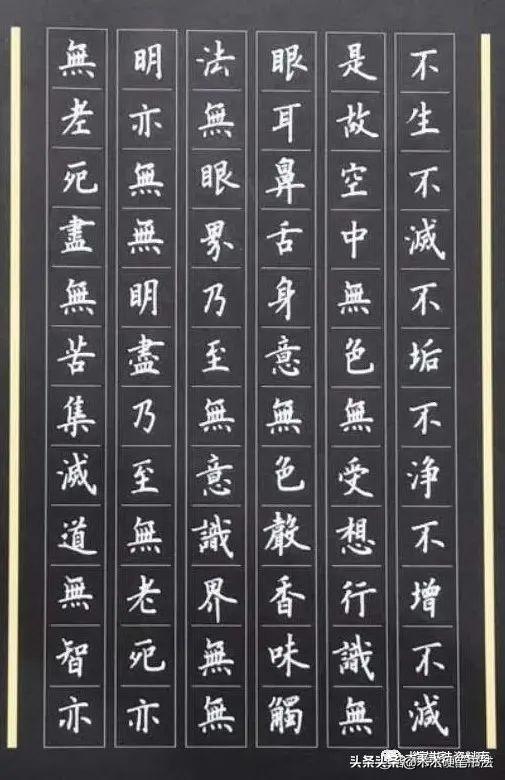 不生不滅不垢不净不增不減
是故空中無色無受想行識無
眼耳鼻舌身意無色聲香味觸
法無眼界乃至無意識界無無
明亦無無明盡乃至無老死亦
無老死盡無苦集滅道無智亦
头条